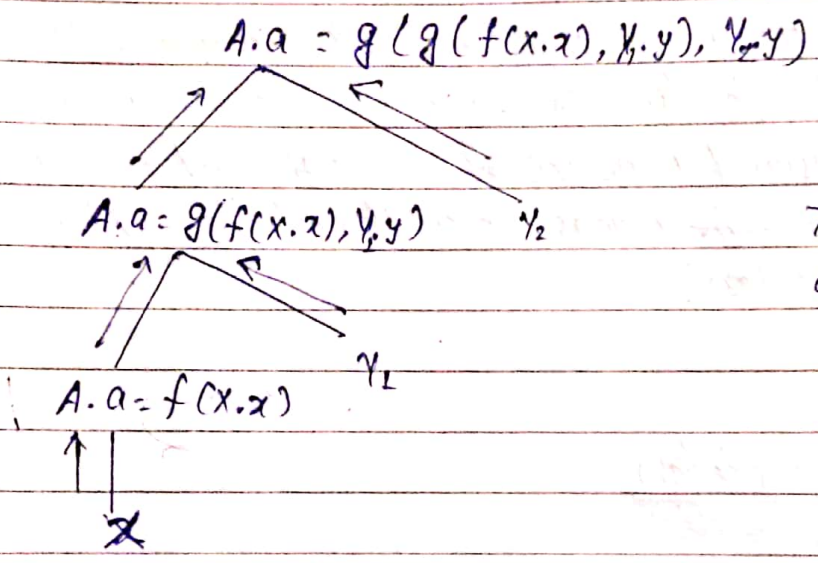 A.a = g(g(f(X.x), Y₁.y), Y₂.y)
A.a = g(f(X.x), Y₁.y)
Y₂
A.a = f(X.x)
Y₁
X